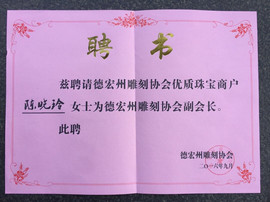 聘书
兹聘请德宏州雕刻协会优质珠宝商户
陈晓玲 女士为德宏州雕刻协会副会长。
此聘
德宏州雕刻协会
二〇一六年九月